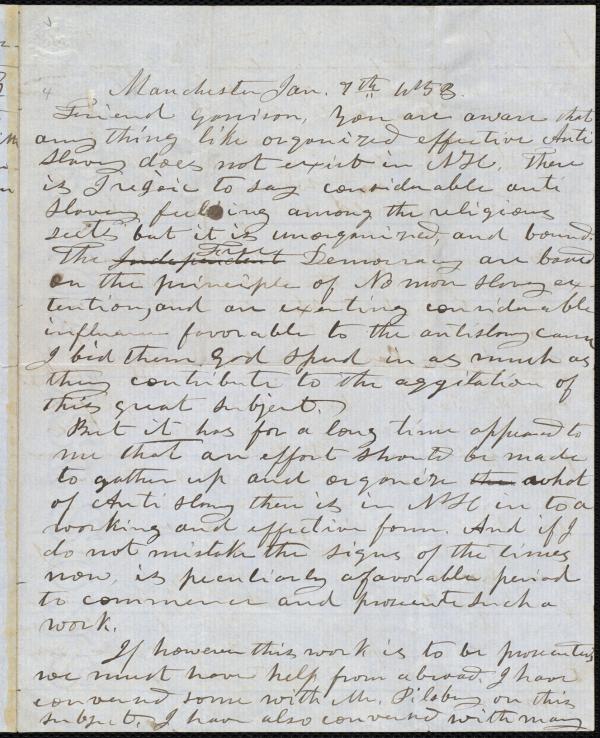 Manchester Jan. 7th 1853.
Friend Garrison, You are aware that
any thing like organized effective Anti
Slavery does not exist in NH. There
is I rejoic to say considerable anti
Slavery feeling among the religious
sects but it is unorganized, and bound.
The Independent Free Democracy are based
on the principle of No more slavery ex
tention, and an exerting considerable
influence favorable to the antislavery cause
I bid them God speed in as much as
they contribute to the aggitation of
this great subject.
But it has for a long time appeared to
me that an effort should be made
to gather up and organize the what
of Anti Slavery there is in NH in to a
working and effective form. And if I
do not mistake the signs of the times
now, is peculiarly a favorable period
to commence and prosecute such a
work.
If however this work is to be prosecuted
we must have help from abroad. I have
conversed some with Mr. Pilsbury on this
subject. I have also conversed with many